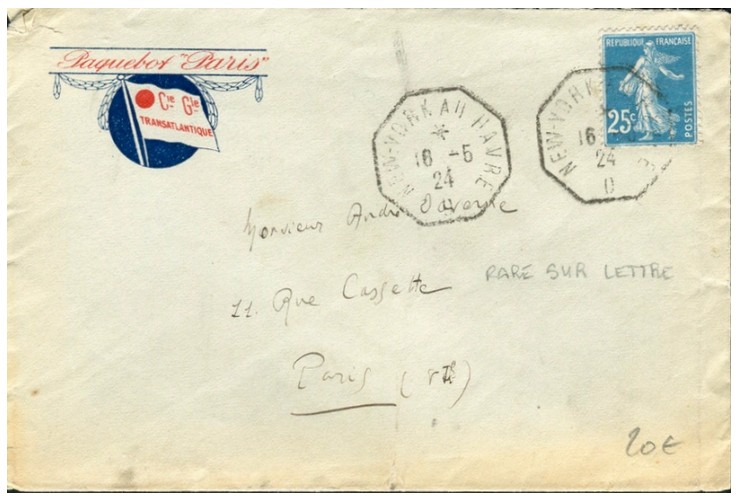 Paquebot "Paris"
Cie Gle
TRANSATLANTIQUE
REPUBLIQUE FRANÇAISE
25c
POSTES
NEW-YORK AU HAVRE
16 -5
24
NEW-YORK
16
24
D
Monsieur André
11. Rue Cassette
RARE SUR LETTRE
Paris
20€